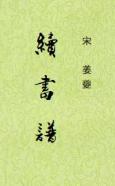 宋 姜夔
續書譜